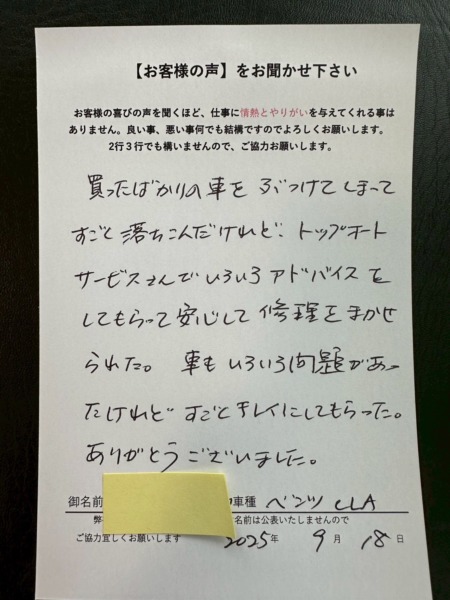 【お客様の声】をお聞かせ下さい
お客様の喜びの声を聞くほど、仕事に情熱とやりがいを与えてくれる事は
ありません。良い事、悪い事何でも結構ですのでよろしくお願いします。
2行3行でも構いませんので、ご協力お願いします。
買ったばかりの車をぶつけてしまって
すごく落ちこんだけれど、トップオート
サービスさんでいろいろアドバイスを
してもらって安心して修理をまかせ
られた。車もいろいろ問題があっ
たけれどすごくキレイにしてもらった。
ありがとうございました。
御名前 車種 ベンツ CLA
弊 名前は公表いたしませんので
ご協力宜しくお願いします 2025年 9月 18日